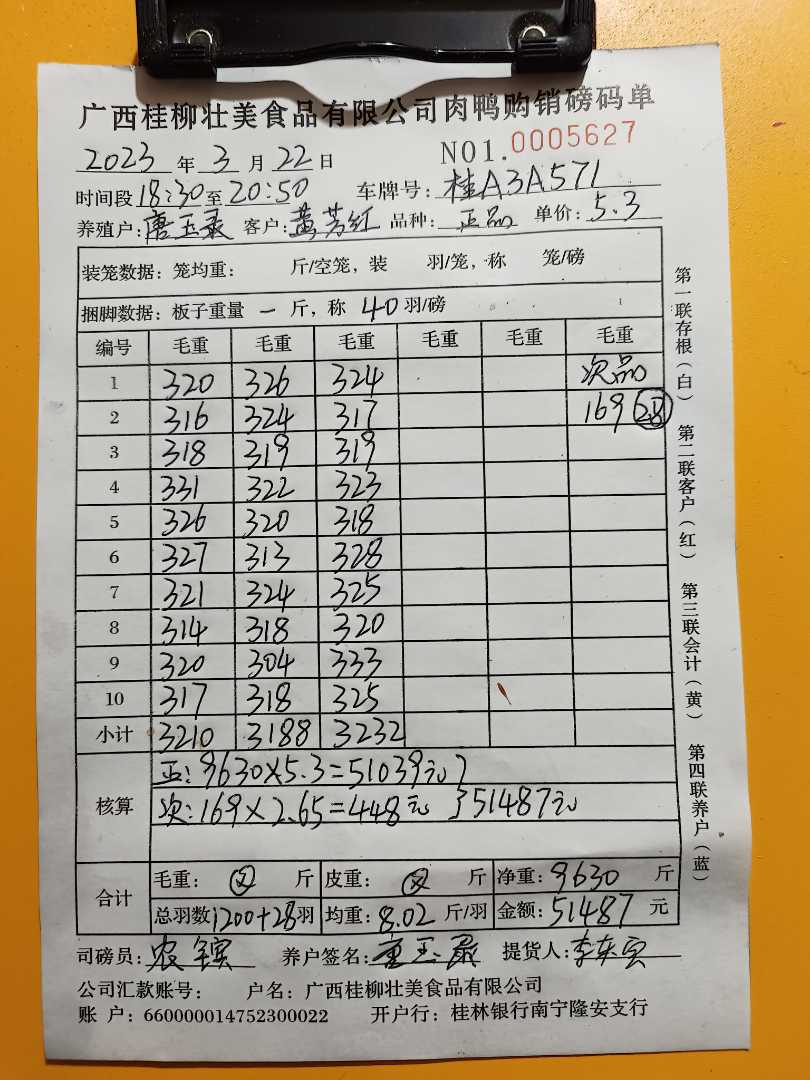 广西桂柳壮美食品有限公司肉鸭购销磅码单
2023 年 3 月 22 日 NO1.0005627
时间段 18:30 至 20:50 车牌号: 桂A3A571
养殖户: 唐玉录 客户: 黄芳红 品种: 正品 单价: 5.3
装笼数据: 笼均重: 斤/空笼, 装 羽/笼, 称 笼/磅
捆脚数据: 板子重量 一 斤, 称 40 羽/磅
编号 毛重 毛重 毛重 毛重 毛重 毛重
1 320 326 324 次品
2 316 324 317 169 28
3 318 319 319
4 331 322 323
5 326 320 318
6 327 313 328
7 321 324 325
8 314 318 320
9 320 304 333
10 317 318 325
小计 3210 3188 3232
核算
正: 9630×5.3=51039元
次: 169×2.65=448元 }51487元
合计
毛重: 斤 皮重: 斤 净重: 9630 斤
总羽数 1200+28 羽 均重: 8.02 斤/羽 金额: 51487 元
司磅员: 农 养户签名: 唐玉录 提货人: 李东
公司汇款账号: 户名: 广西桂柳壮美食品有限公司
账 户: 660000014752300022 开户行: 桂林银行南宁隆安支行
第一联存根(白) 第二联客户(红) 第三联会计(黄) 第四联养户(蓝)